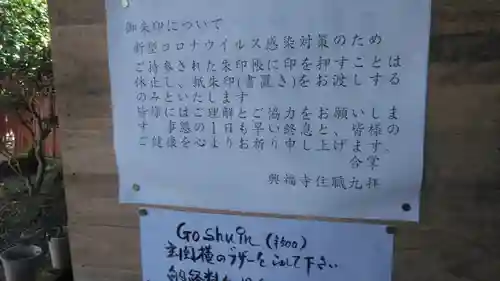 御朱印について
新型コロナウイルス感染対策のため
ご持参された朱印帳に印を押すことは
休止し、紙朱印(書置き)をお渡しする
のみといたします
皆様にはご理解とご協力をお願いしま
す 事態の1日も早い終息と、皆様の
ご健康を心よりお祈り申し上げます。
合掌
興福寺住職九拝
Goshuin (¥300)
玄関横のブザーをならして下さい